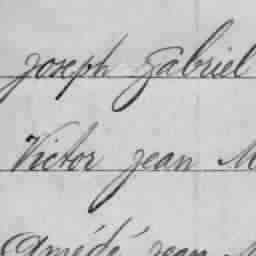 Joseph Gabriel
Victor Jean M
Amédé Jean M